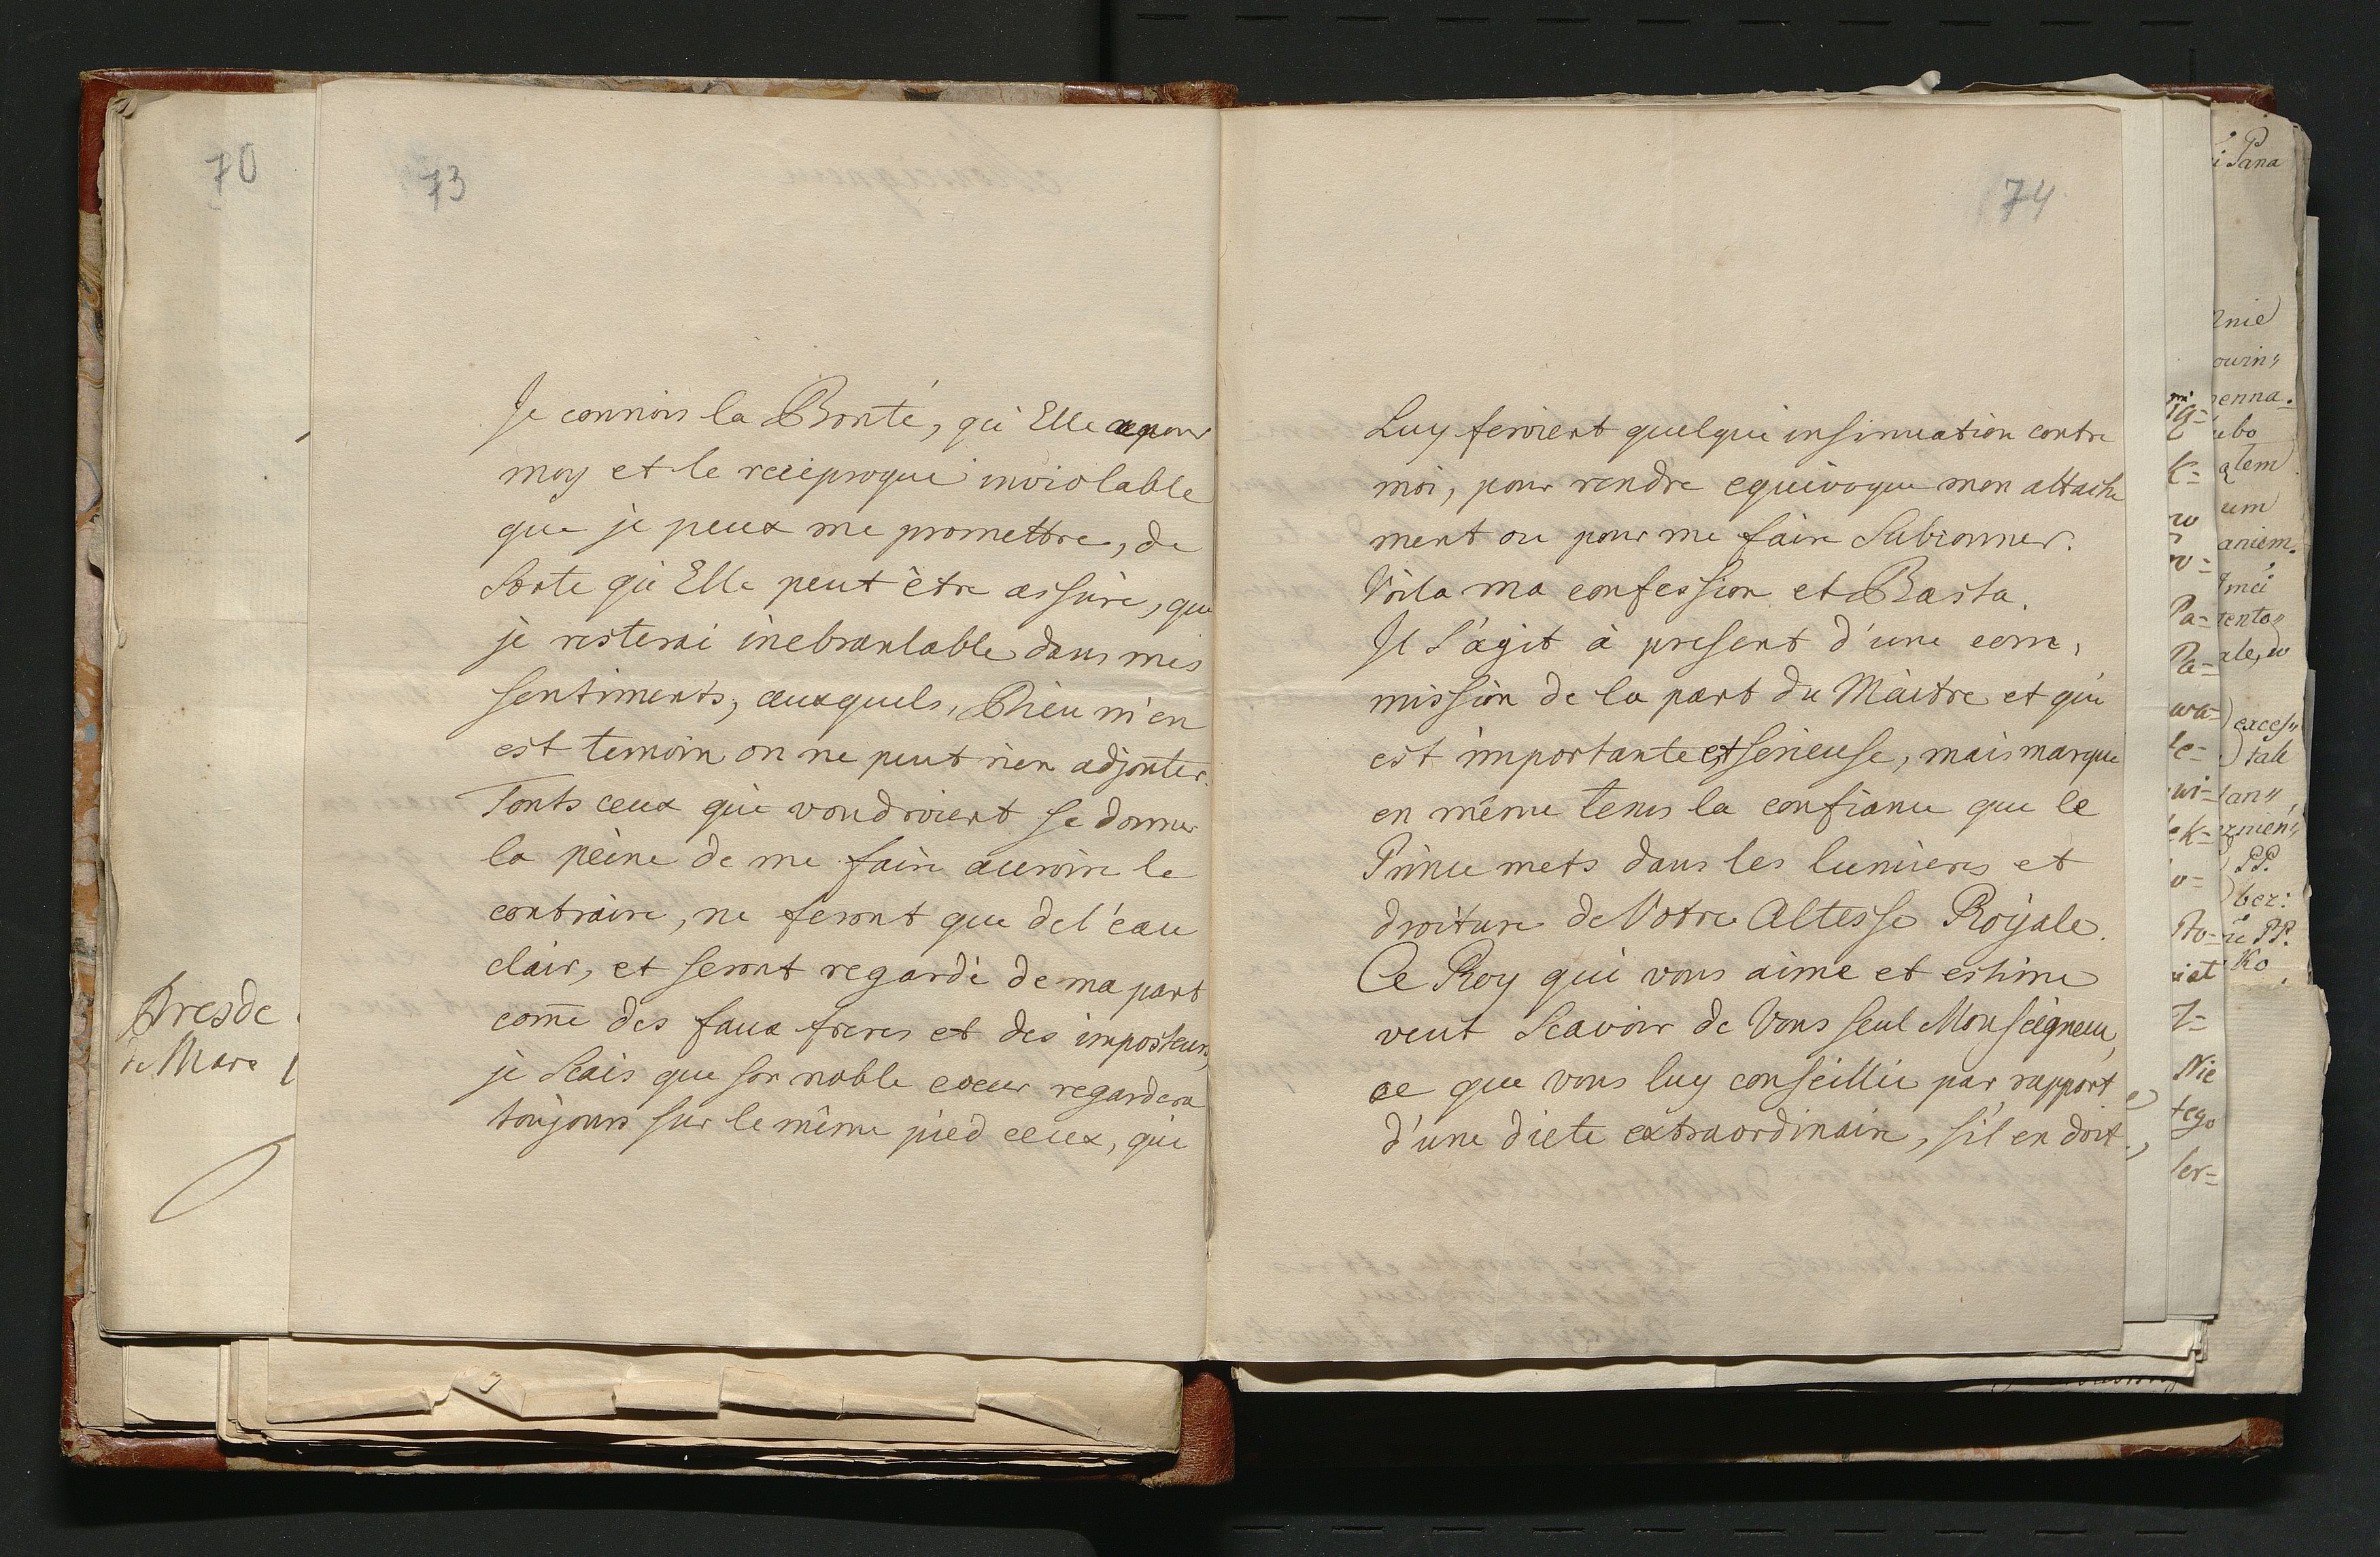 70
Dresde
Mars
73
Je connois la Bonté, qu'Elle a pour
moy et le reciproque inviolable
que je peux me promettre, de
Sorte qu'Elle peut être assure, que
je resterai inebranlable dans mes
sentiments, auxquels, Dieu m'en
est temoin on ne peut rien adjouter.
Touts ceux qui voudroient se donner
la peine de me faire acroire le
contraire, ne feront que de l'eau
clair, et seront regardé de ma part
com̃e des faux freres et des imposteurs,
je Scais que son noble coeur regardera
toujours sur le même pied ceux, qui
74
Luy feroient quelque insinuation contre
moi, pour rendre equivoque mon attache
ment ou pour me faire Subronner.
Voila ma confession et Basta.
Il s'agit à present d'une com,
mission de la part du Maitre et qui
est importante et serieuse, mais marque
en même tems la confiance que le
Prince mets dans les lumieres et
droiture de Votre Altesse Royale.
Ce Roy qui vous aime et estime
veut Scavoir de Vous seul Monseigneur,
ce que vous luy conseillie par rapport
d'une diete extraordinaire, s'il en doit